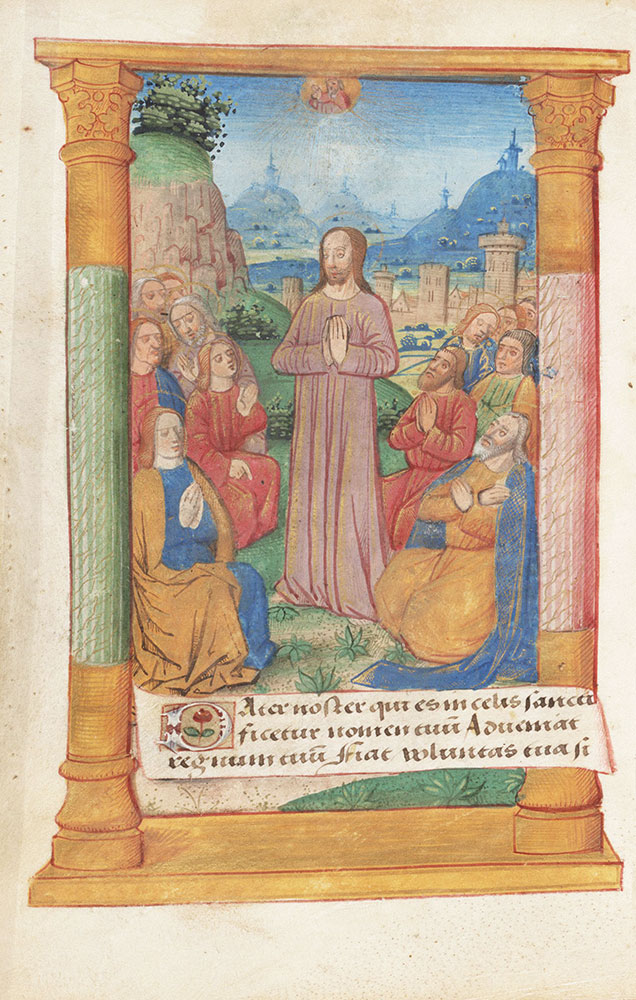 Pater noster qui es in celis sancti
ficetur nomen tuū Adueniat
regnum tuū Fiat voluntas tua si